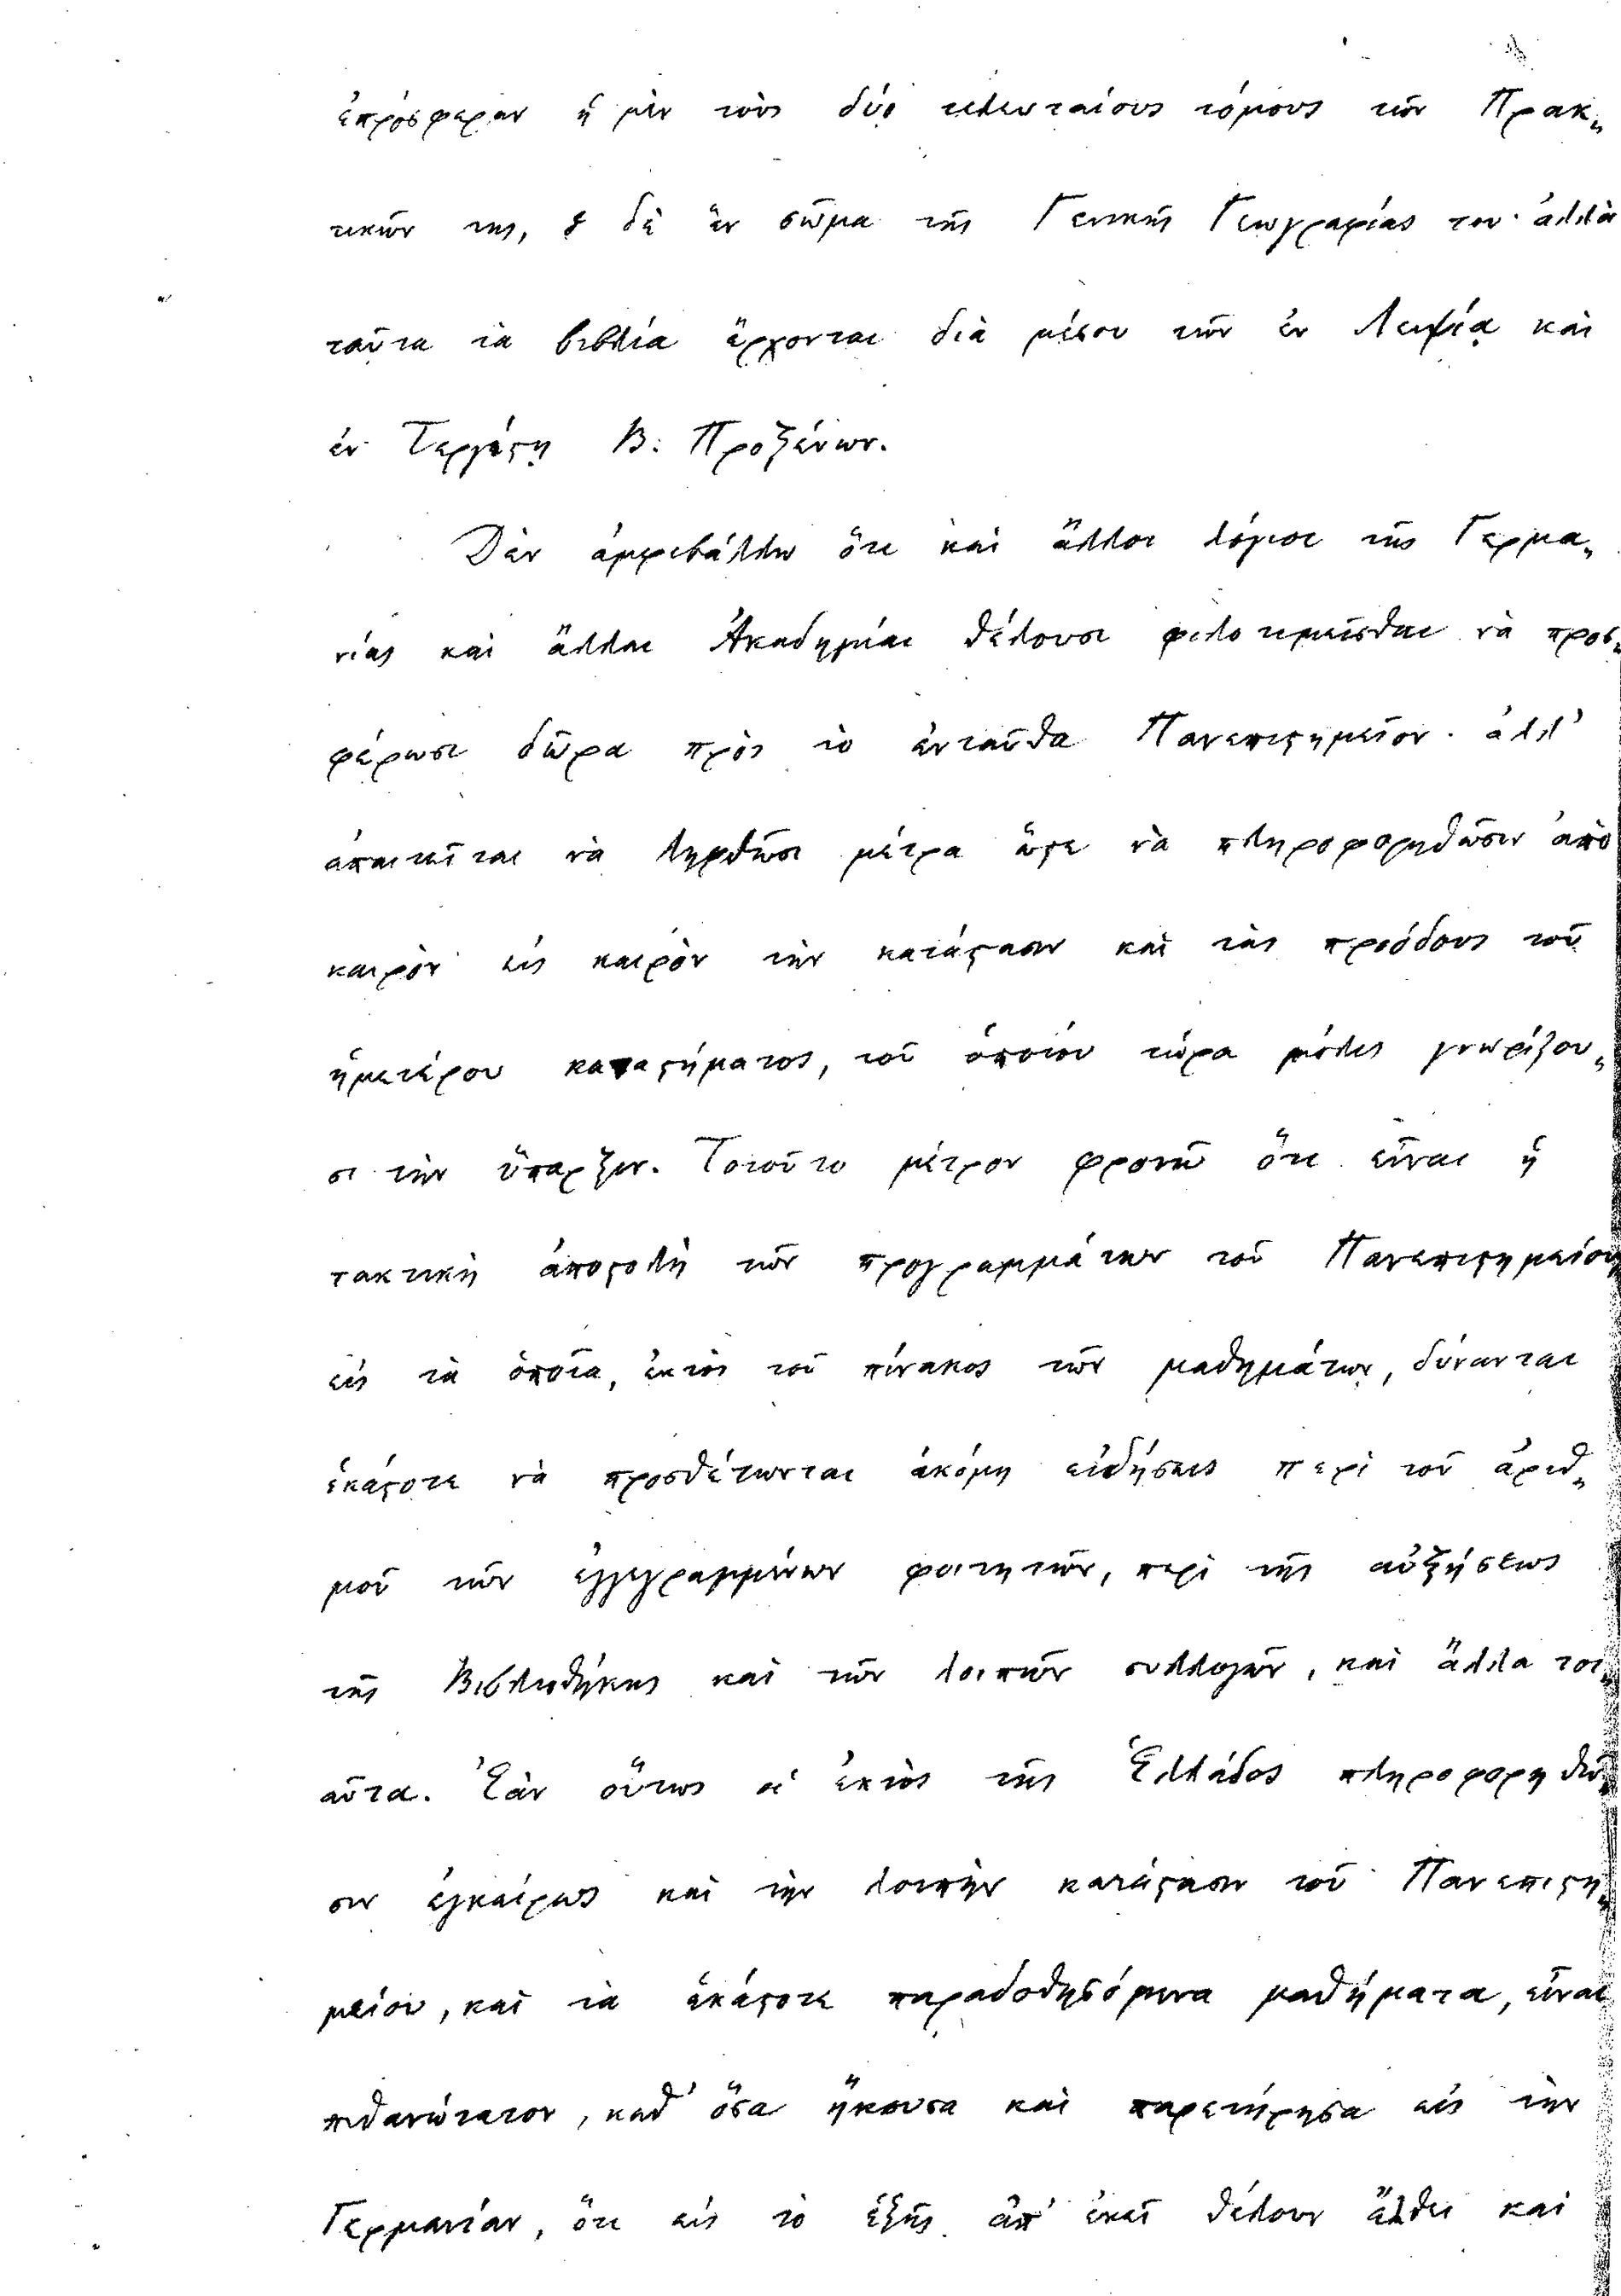 ἐπρόσφεραν ἡ μὲν τοὺς δύο τελευταίους τόμους τῶν Πρακ„
τικῶν της, ὁ δὲ ἓν σῶμα τῆς Γενικῆς Γεωγραφίας του· ἀλλὰ
ταῦτα τὰ βιβλία ἔρχονται διὰ μέσου τῶν ἐν Λειψίᾳ καὶ
ἐν Τεργέςῃ Β: Προξένων.
Δὲν ἀμφιβάλλω ὅτι καὶ ἄλλοι λόγιοι τῆς Γερμα„
νίας καὶ ἄλλαι Ἀκαδημίαι θέλουσι φιλοτιμεῖσθαι νὰ προς„
φέρωσι δῶρα πρὸς τὸ ἐνταῦθα Πανεπιςημεῖον· ἀλλ'
ἀπαιτεῖται νὰ ληφθῶσι μέτρα ὥςε νὰ πληροφορηθῶσιν ἀπὸ
καιρὸν εἰς καιρὸν τὴν κατάςασιν καὶ τὰς προόδους τοῦ
ἡμετέρου καταςήματος, τοῦ ὁποίου τώρα μόλις γνωρίζου„
σι τὴν ὕπαρξιν. Τοιοῦτο μέτρον φρονῶ ὅτι εἶναι ἡ
τακτικὴ ἀποςολὴ τῶν προγραμμάτων τοῦ Πανεπιςημείου
εἰς τὰ ὁποῖα, ἐκτὸς τοῦ πίνακος τῶν μαθημάτων, δύνανται
ἑκάςοτε νὰ προσθέτωνται ἀκόμη εἰδήσεις περὶ τοῦ ἀριθ„
μοῦ τῶν ἐγγεγραμμένων φοιτητῶν, περὶ τῆς αὐξήσεως
τῆς Βιβλιοθήκης καὶ τῶν λοιπῶν συλλογῶν, καὶ ἄλλα τοι„
αῦτα. Ἐὰν οὕτως οἱ ἐκτὸς τῆς Ἑλλάδος πληροφορηθῶ„
σιν ἐγκαίρως καὶ τὴν λοιπὴν κατάςασιν τοῦ Πανεπιςη„
μείου, καὶ τὰ ἑκάςοτε παραδοθησόμενα μαθήματα, εἶναι
πιθανώτατον, καθ' ὅσα ἤκουσα καὶ παρετήρησα εἰς τὴν
Γερμανίαν, ὅτι εἰς τὸ ἑξῆς ἀπ' ἐκεῖ θέλουν ἔλθει καὶ